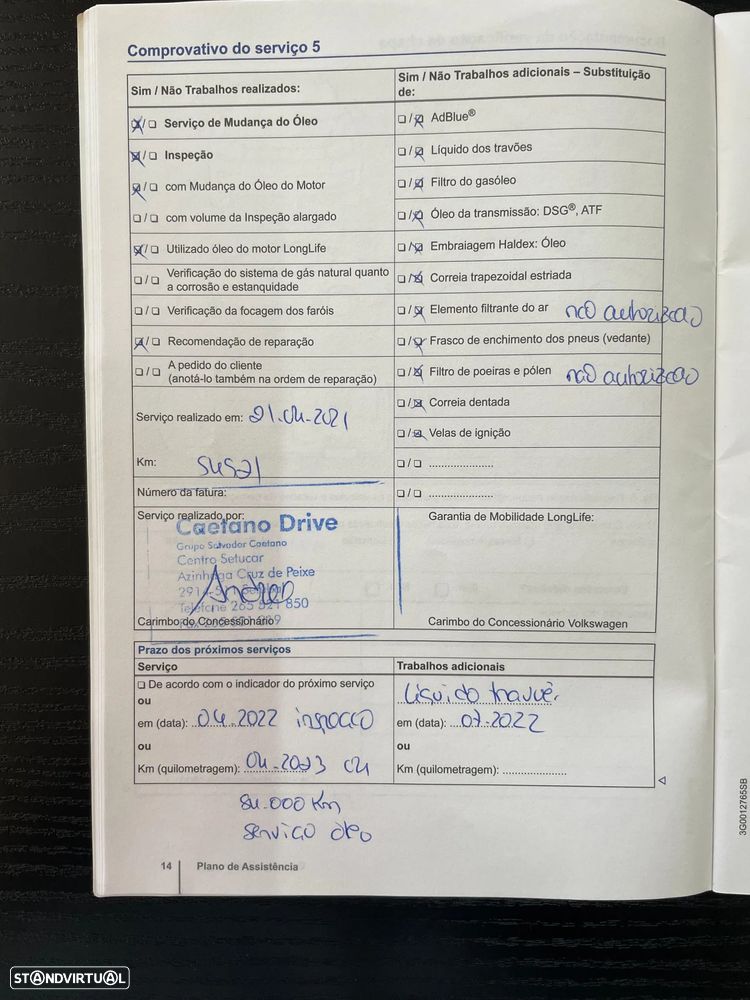 Comprovativo do serviço 5
Sim / Não Trabalhos realizados:
☒/☐ Serviço de Mudança do Óleo
☒/☐ Inspeção
☒/☐ com Mudança do Óleo do Motor
☐/☐ com volume da Inspeção alargado
☒/☐ Utilizado óleo do motor LongLife
☐/☐ Verificação do sistema de gás natural quanto
a corrosão e estanquidade
☐/☐ Verificação da focagem dos faróis
☒/☐ Recomendação de reparação
☐/☐ A pedido do cliente
(anotá-lo também na ordem de reparação)
Serviço realizado em: 21.04-2021
Km:
Número da fatura:
Serviço realizado por:
Caetano Drive
Grupo Salvador Caetano
Centro Setucar
Azinhaga Cruz de Peixe
Telefone 265 521 850
Carimbo do Concessionário
Sim / Não Trabalhos adicionais – Substituição
de:
☐/☒ AdBlue®
☐/☒ Líquido dos travões
☐/☒ Filtro do gasóleo
☐/☒ Óleo da transmissão: DSG®, ATF
☐/☒ Embraiagem Haldex: Óleo
☐/☒ Correia trapezoidal estriada
☐/☒ Elemento filtrante do ar não autorizcao
☐/☒ Frasco de enchimento dos pneus (vedante)
☐/☒ Filtro de poeiras e pólen não autorizcao
☐/☒ Correia dentada
☐/☒ Velas de ignição
☐/☐ .....................
☐/☐ .....................
Garantia de Mobilidade LongLife:
Carimbo do Concessionário Volkswagen
Prazo dos próximos serviços
Serviço
☐ De acordo com o indicador do próximo serviço
ou
em (data): 04.2022 inspocco
ou
Km (quilometragem): 04-2023 ou
84.000 Km
serviço óleo
Trabalhos adicionais
Liquido
em (data): 07.2022
ou
Km (quilometragem): .....................
14 Plano de Assistência
3G0012765SB
STANDVIRTUAL